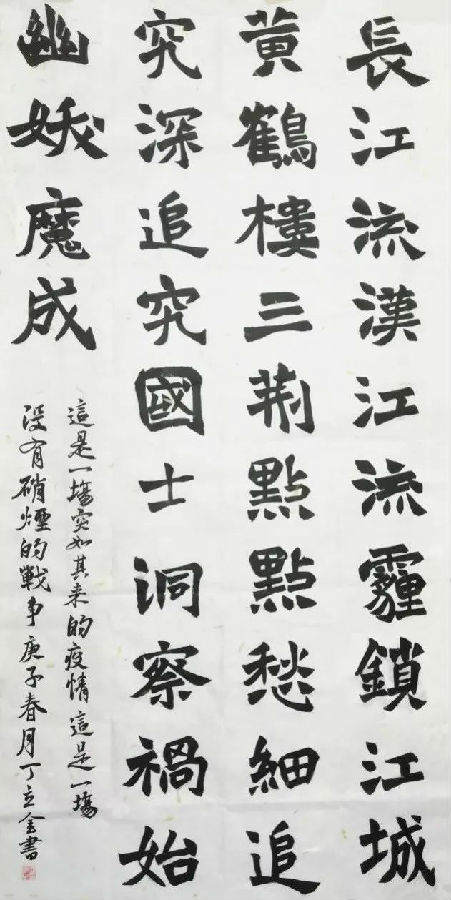 長江流漢江流霾鎖江城
黃鶴樓三荆點點愁細追
究深追究國士洞察禍始
幽妖魔成
這是一場突如其来的疫情這是一場
没有硝煙的戰争庚子春月丁立全書